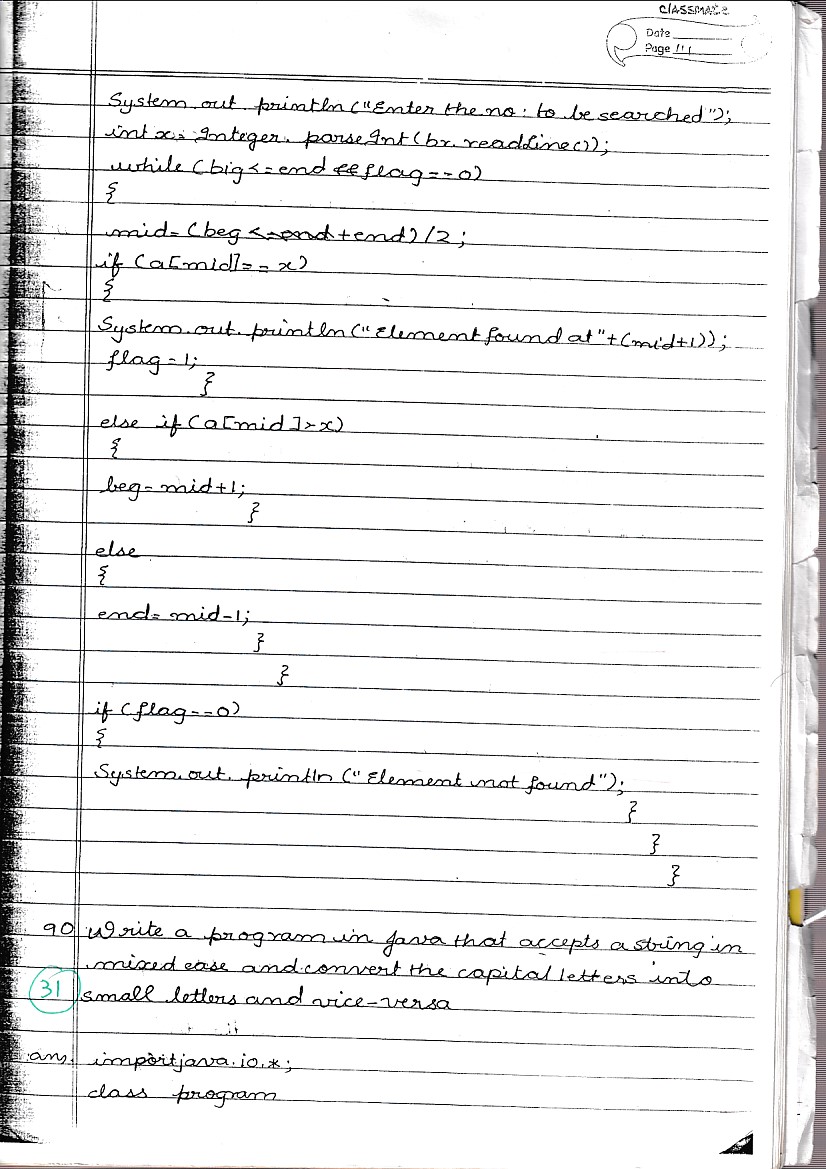 CLASSMATE
Date
Page
System.out.println("Enter the no: to be searched");
int x= Integer.parseInt(br.readLine());
while (big<=end && flag==0)
{
mid=(beg <=end +end)/2;
if (a[mid]==x)
{
System.out.println("Element found at"+(mid+1));
flag=1;
}
else if (a[mid]>x)
{
beg=mid+1;
}
else
{
end=mid-1;
}
}
if (flag==0)
{
System.out.println("Element not found");
}
}
}
90 Write a program in java that accepts a string in
mixed case and convert the capital letters into
31 small letters and vice-versa
ans. import java.io.*;
class program